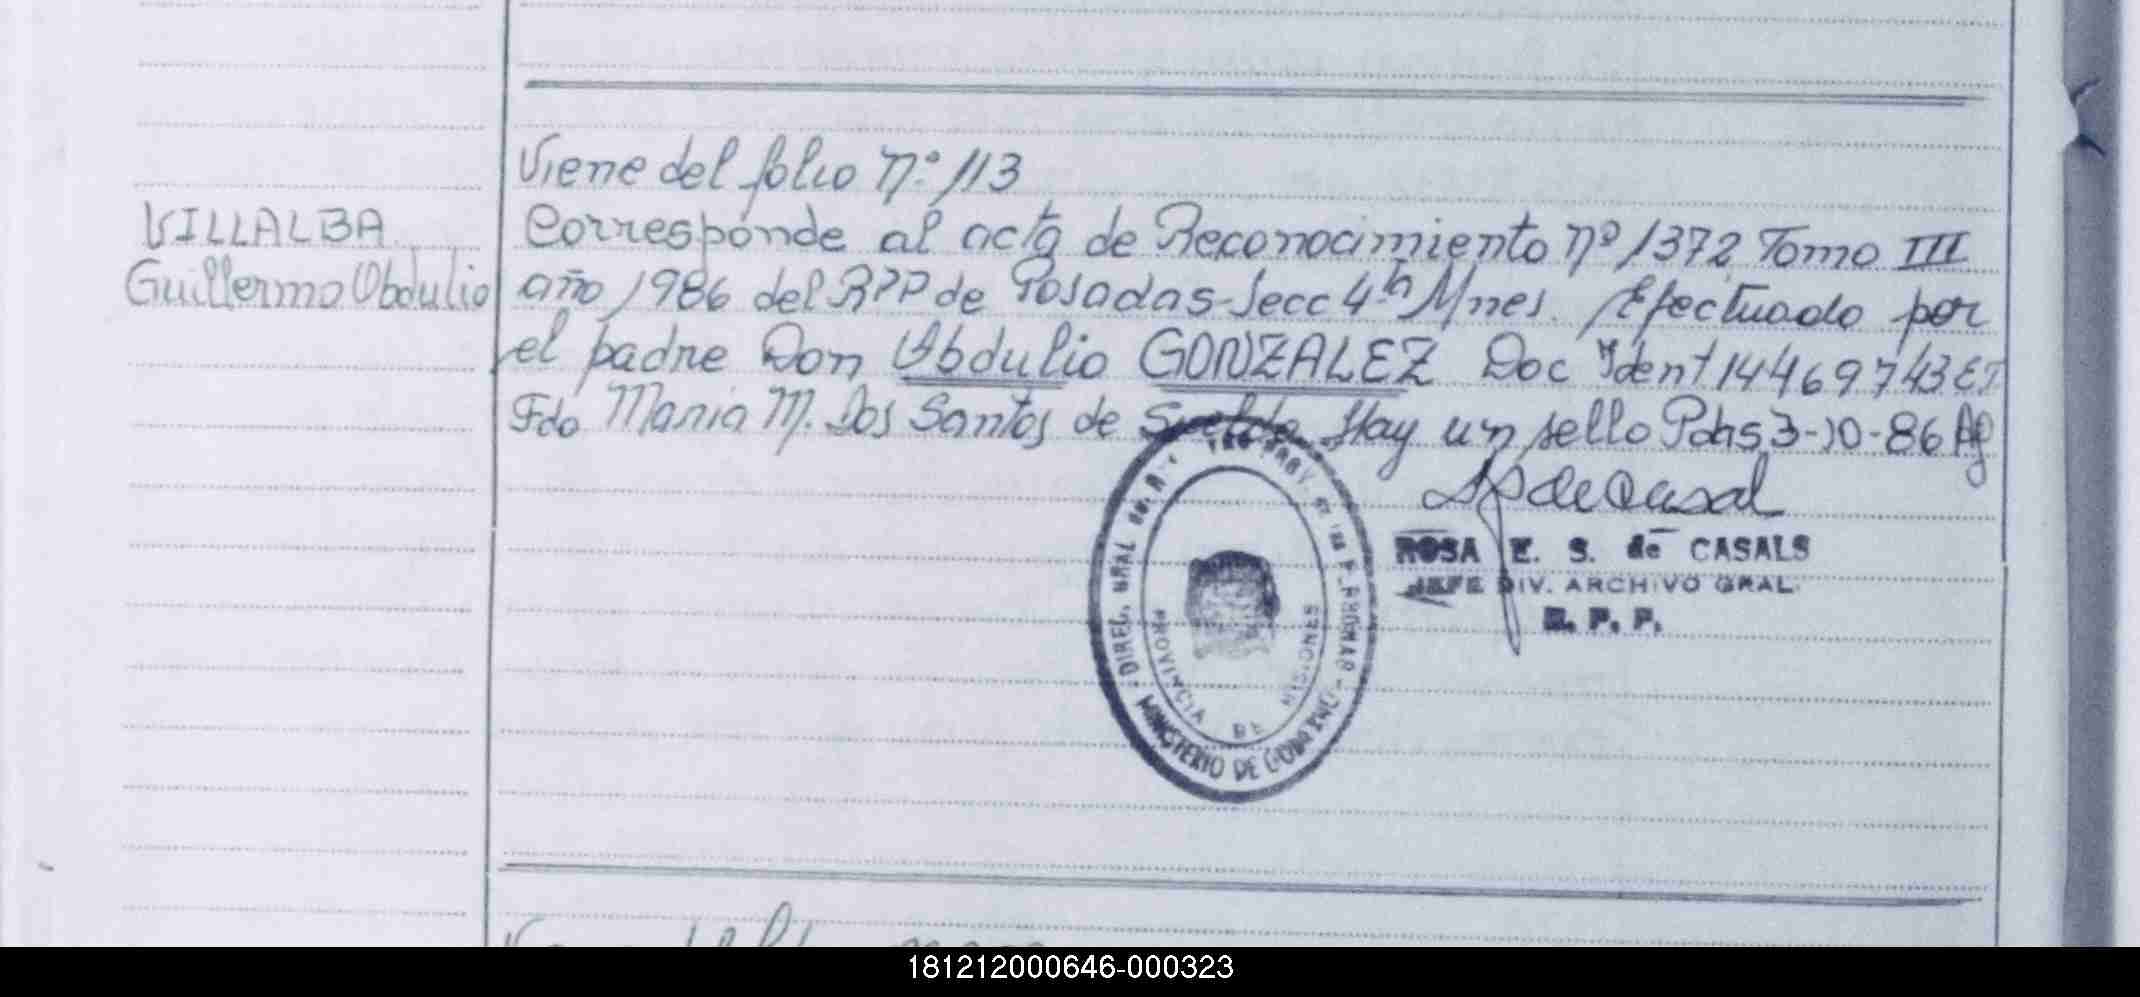 Viene del folio N.º 113
VILLALBA
Guillermo Obdulio
Corresponde al acta de Reconocimiento nº 1372 Tomo III
año 1986 del RPP de Posadas-Secc 4ta Mnes. Efectuado por
el padre Don Obdulio GONZALEZ Doc Ident 14469743
Fdo Maria M. Dos Santos de Hay un sello Pdas 3-10-86
ROSA E. S. de CASALS
JEFE DIV. ARCHIVO GRAL.
R. P. P.
DIREC. GRAL DEL PROV. DE LAS PERSONAS
MINISTERIO DE GOBIERNO
PROVINCIA DE MISIONES
181212000646-000323